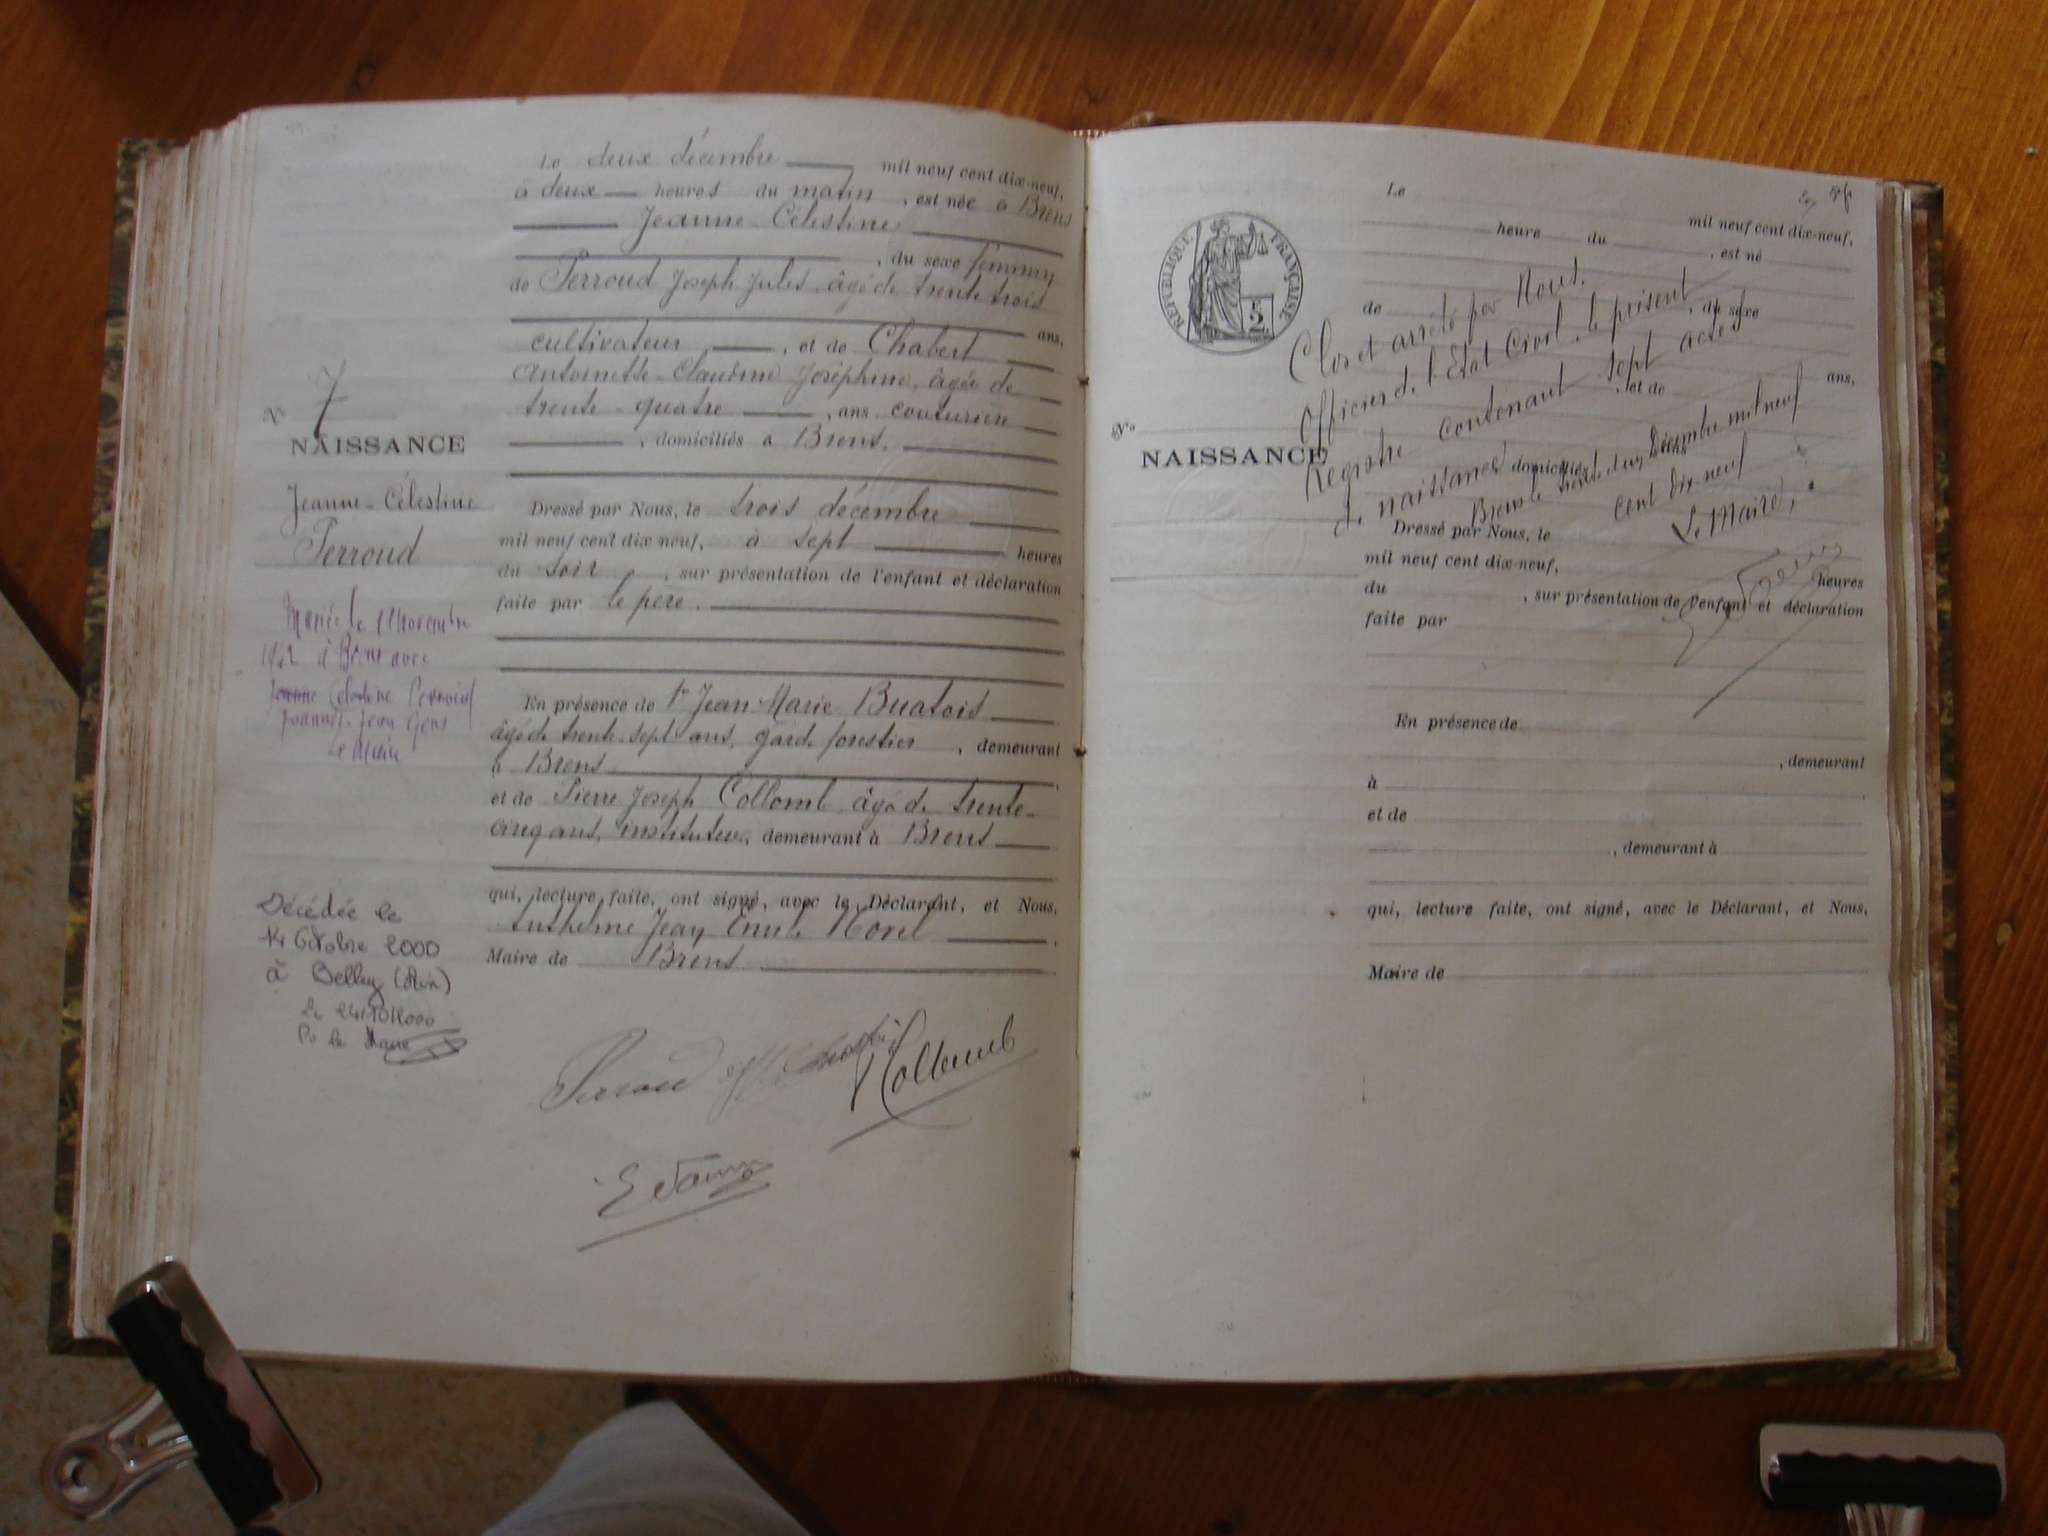 Le deux décembre mil neuf cent dix-neuf,
à deux heures du matin, est née à Brens
Jeanne-Célestine
, du sexe féminin
de Perroud Joseph Jules âgé de trente trois
ans,
cultivateur, et de Chabert
Antoinette-Claudine Joséphine, âgée de
trente-quatre, ans couturière
, domiciliés à Brens.
N° 7
NAISSANCE
Jeanne-Célestine
Perroud
Dressé par Nous, le trois décembre
mil neuf cent dix-neuf, à sept heures
du soir, sur présentation de l'enfant et déclaration
faite par le père.
Mariée le novembre
à Brens avec
Célestine Perroud
Jean
Le Maire
En présence de 1° Jean-Marie Buatois
âgé de trente-sept ans, garde forestier, demeurant
à Brens
et de Pierre Joseph Collomb âgé de trente-
cinq ans, instituteur, demeurant à Brens
qui, lecture faite, ont signé, avec le Déclarant, et Nous,
Anthelme Jean Emile
Maire de Brens
Décédée le
14 Octobre 2000
à Belley (Ain)
Le 24/10/2000
Pr le Maire
Perroud
Collomb
RÉPUBLIQUE FRANÇAISE
Le mil neuf cent dix-neuf,
heure du, est né
de, du sexe
ans,
, et de
N°
NAISSANCE
domiciliés
Clos et arrêté par Nous.
Officier de l'Etat Civil, le présent
Registre contenant sept actes
de naissances
Brens le trente un Décembre mil neuf
cent dix-neuf
Le Maire,
Dressé par Nous, le
mil neuf cent dix-neuf, heures
du, sur présentation de l'enfant et déclaration
faite par
En présence de
, demeurant
à
et de
, demeurant à
qui, lecture faite, ont signé, avec le Déclarant, et Nous,
Maire de